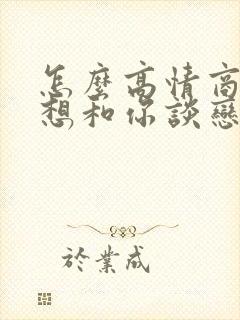 怎麼高情商
想和你談戀
於業成